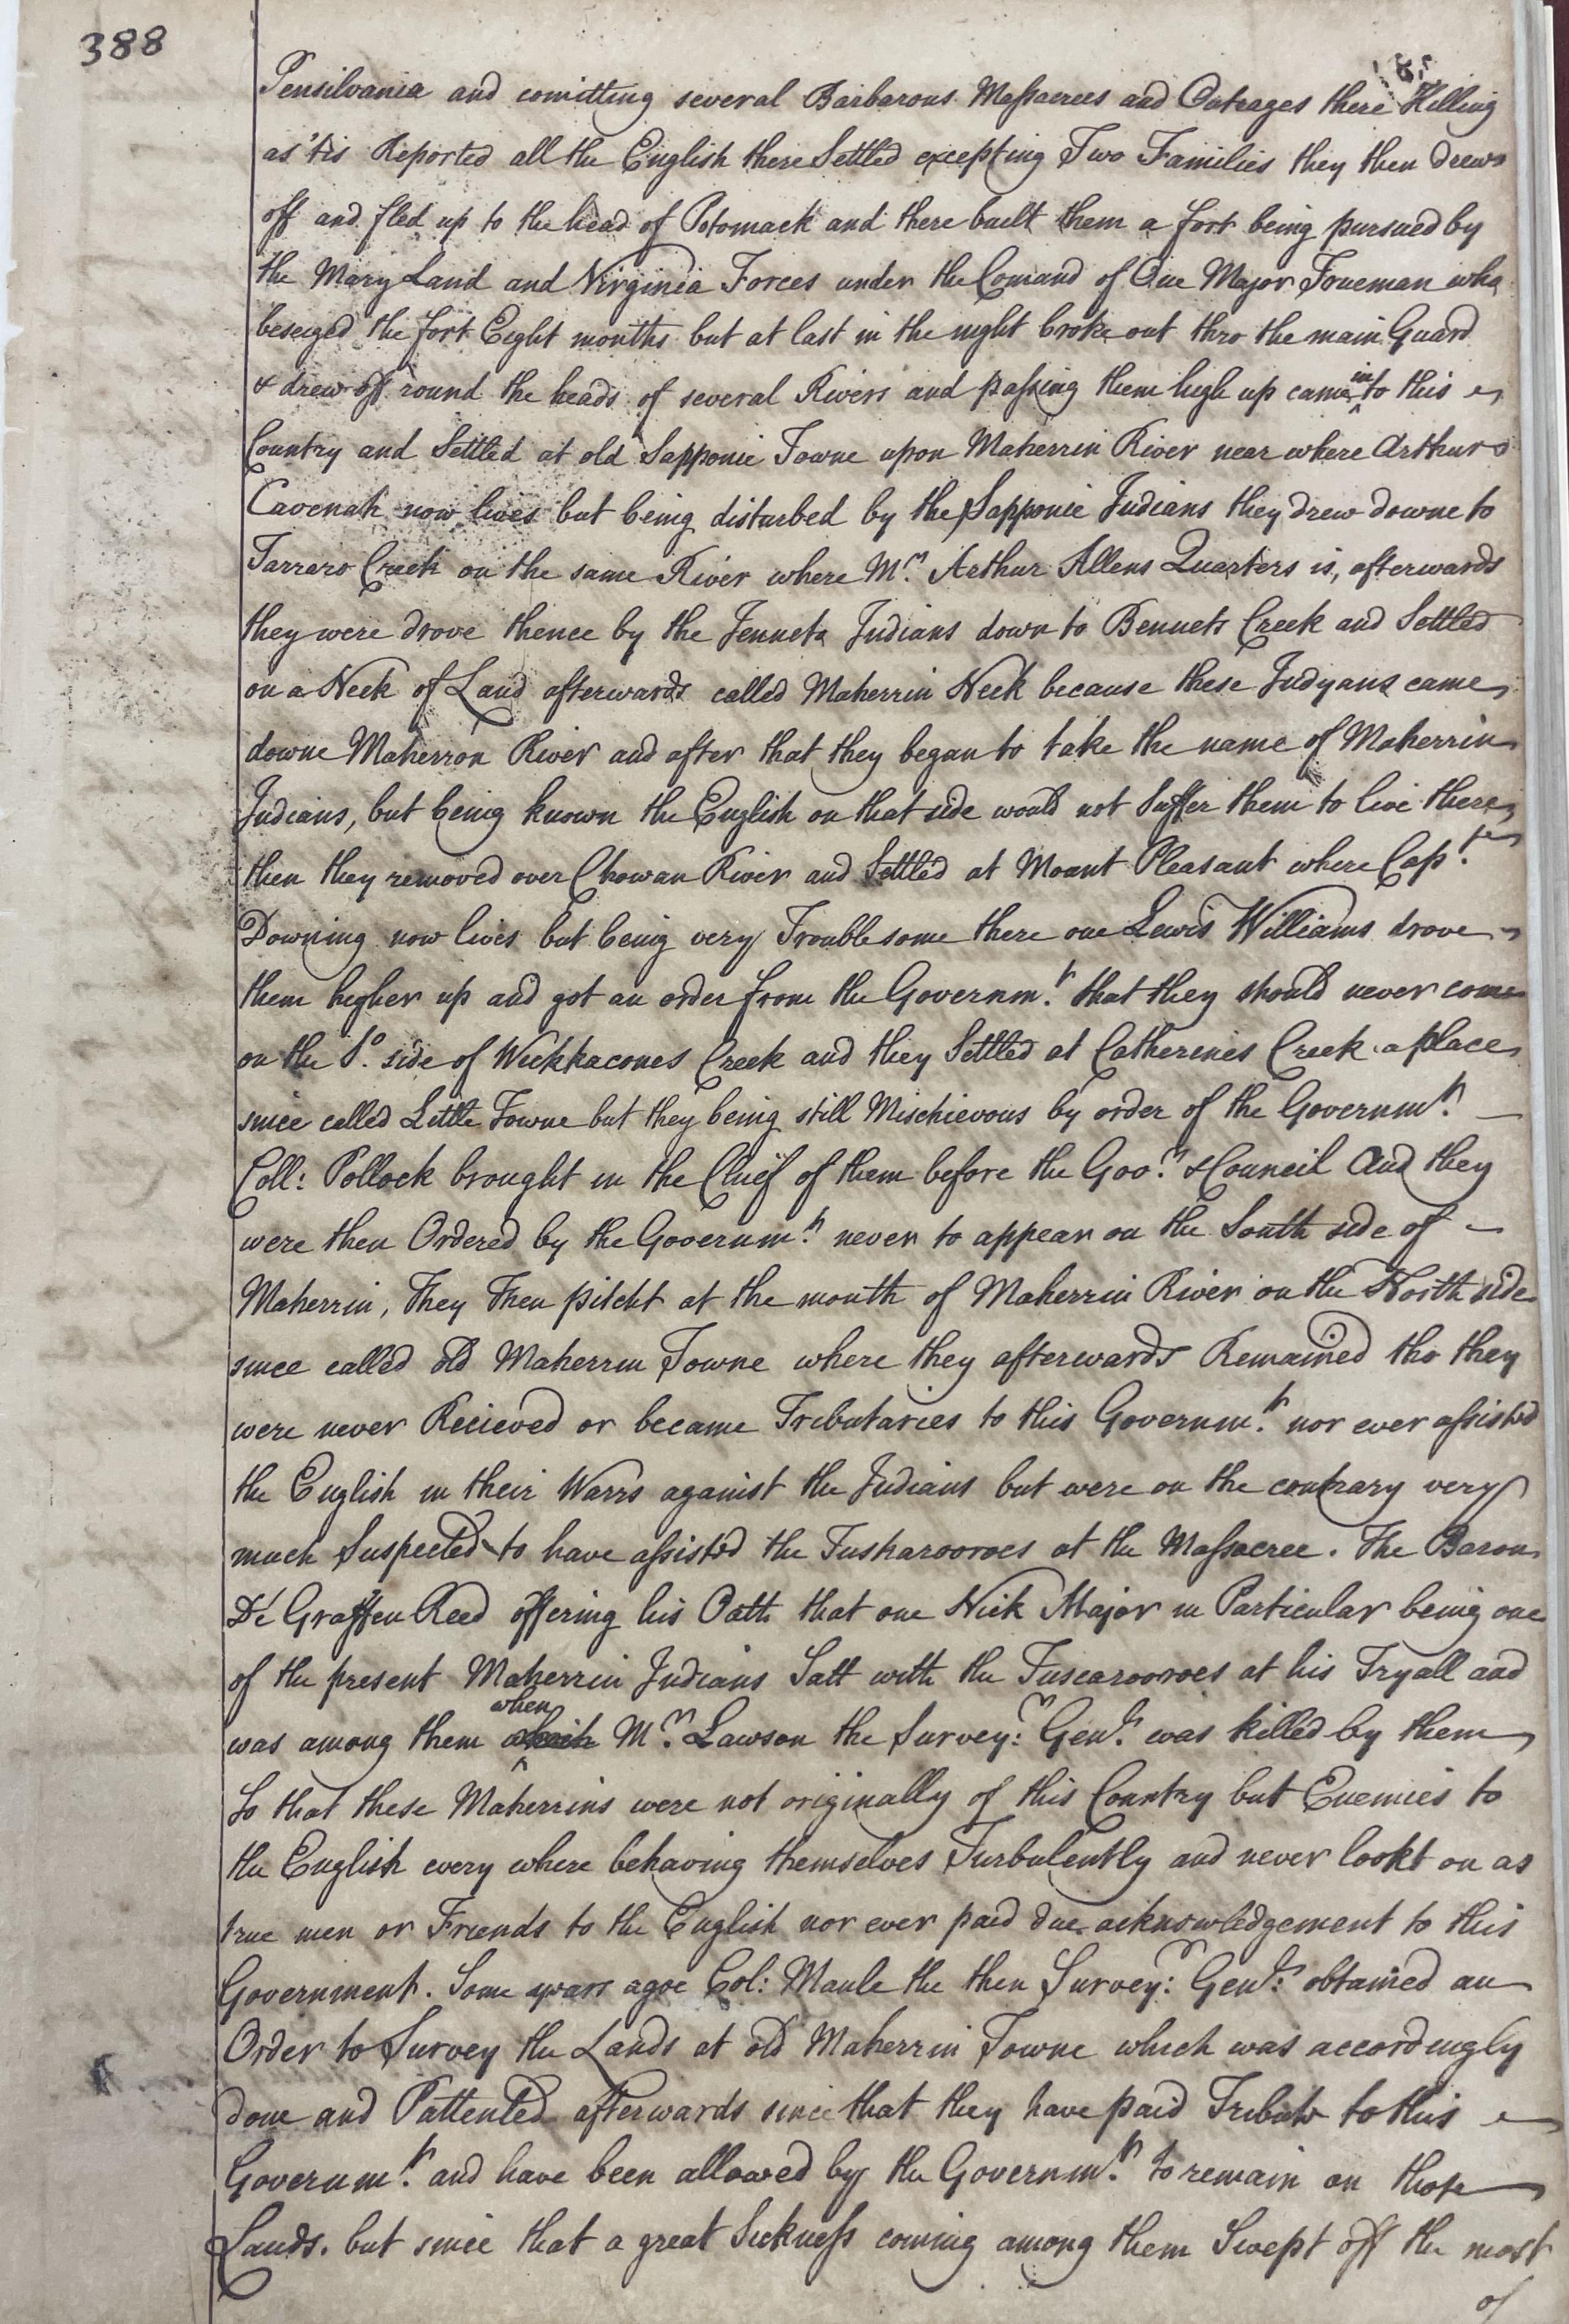 388
Pensilvania and comitting several Barbarous Massacrees and Outrages there Killing
as 'tis Reported all the English there Settled excepting Two Families they then drew
off and fled up to the head of Potomack and there built them a fort being pursued by
the Mary Land and Virginia Forces under the Comand of One Major Trueman who
beseiged the fort Eight months but at last in the night broke out thro the main Guard
& drew off round the heads of several Rivers and passing them high up came into this
Country and Settled at old Sapponie Towne upon Maherrin River near where Arthur
Cavenah now lives but being disturbed by the Sapponie Indians they drew downe to
Tarraro Creek on the same River where Mr. Arthur Allens Quarters is, afterwards
they were drove thence by the Jenneto Indians down to Bennets Creek and Settled
on a Neck of Land afterwards called Maherrin Neck because these Indyans came
downe Maherron River and after that they began to take the name of Maherrin
Indians, but being known the English on that side would not Suffer them to live there
then they removed over Chowan River and Settled at Mount Pleasant where Capt.
Downing now lives but being very Troublesome there one Lewis Williams drove
them higher up and got an order from the Governmt. that they should never come
on the So. side of Wickkacones Creek and they Settled at Catherines Creek a place
since called Little Towne but they being still Mischievous by order of the Governmt.
Coll: Pollock brought in the Chief of them before the Govr. & Council And they
were then Ordered by the Governmt. never to appear on the South side of
Maherrin, They Then pitcht at the mouth of Maherrin River on the North side
since called old Maherrin Towne where they afterwards Remained tho they
were never Recieved or became Tributaries to this Governmt. nor ever assisted
the English in their Warrs against the Indians but were on the contrary very
much Suspected to have assisted the Tuskarooroes at the Massacree. The Baron
De' Graffen Reed offering his Oath that one Nick Major in Particular being one
of the present Maherrin Indians Satt with the Tuscarooroes at his Tryall and
was among them when Mr. Lawson the Survey:r Genl. was killed by them
So that these Maherrins were not originally of this Country but Enemies to
the English every where behaving themselves Turbulently and never lookt on as
true men or Friends to the English nor ever paid due acknowledgement to this
Government. Some years agoe Col: Maule the then Survey:r Genl: obtained an
Order to Survey the Lands at old Maherrin Towne which was accordingly
done and Pattented afterwards since that they have paid Tribute to this
Governmt. and have been allowed by the Governmt. to remain on those
Lands. but since that a great Sickness coming among them Swept off the most
of